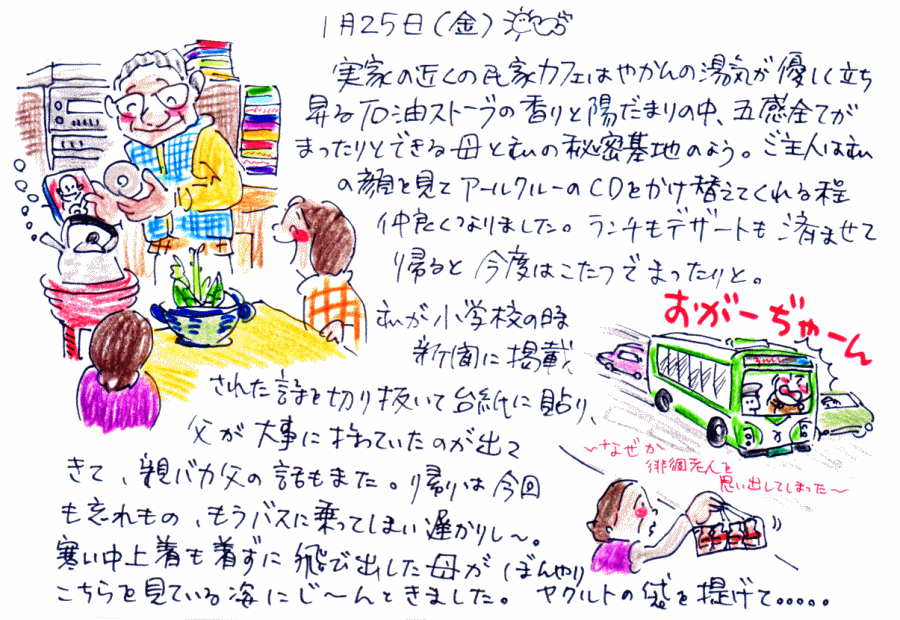 1月25日(金)
実家の近くの民家カフェはやかんの湯気が優しく立ち
昇る石油ストーブの香りと陽だまりの中、五感全てが
まったりとできる母と私の秘密基地のよう。ご主人は私
の顔を見てアールクルーのCDをかけ替えてくれる程
仲良くなりました。ランチもデザートも済ませて
帰ると今度はこたつでまったりと。
私が小学校の時
新聞に掲載
された詩を切り抜いて台紙に貼り、
父が大事に持っていたのが出て
きて、親バカ父の話もまた。帰りは今回
も忘れもの、もうバスに乗ってしまい遅かりし〜。
寒い中上着も着ずに飛び出した母がぼんやり
こちらを見ている姿にじ〜んときました。ヤクルトの袋を提げて……
おがーぢゃーん
〜なぜか
徘徊老人を
思い出してしまった〜